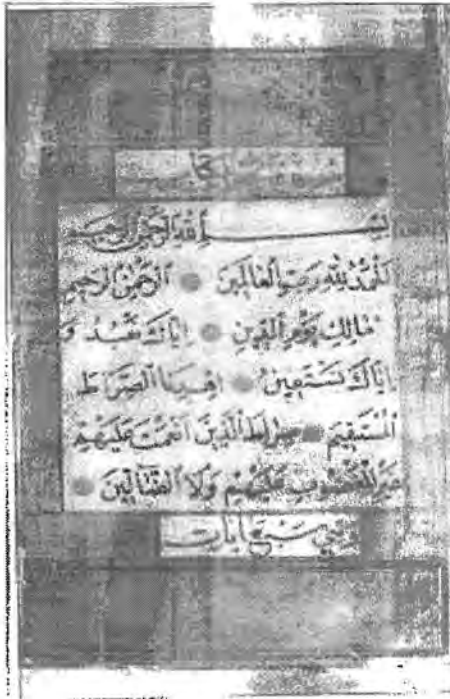 فاتحة الكتاب
بسم الله الرحمن الرحيم
الحمد لله رب العالمين الرحمن الرحيم
مالك يوم الدين إياك نعبد و
إياك نستعين اهدنا الصراط
المستقيم صراط الذين أنعمت عليهم
غير المغضوب عليهم ولا الضالين
وهي سبع آيات